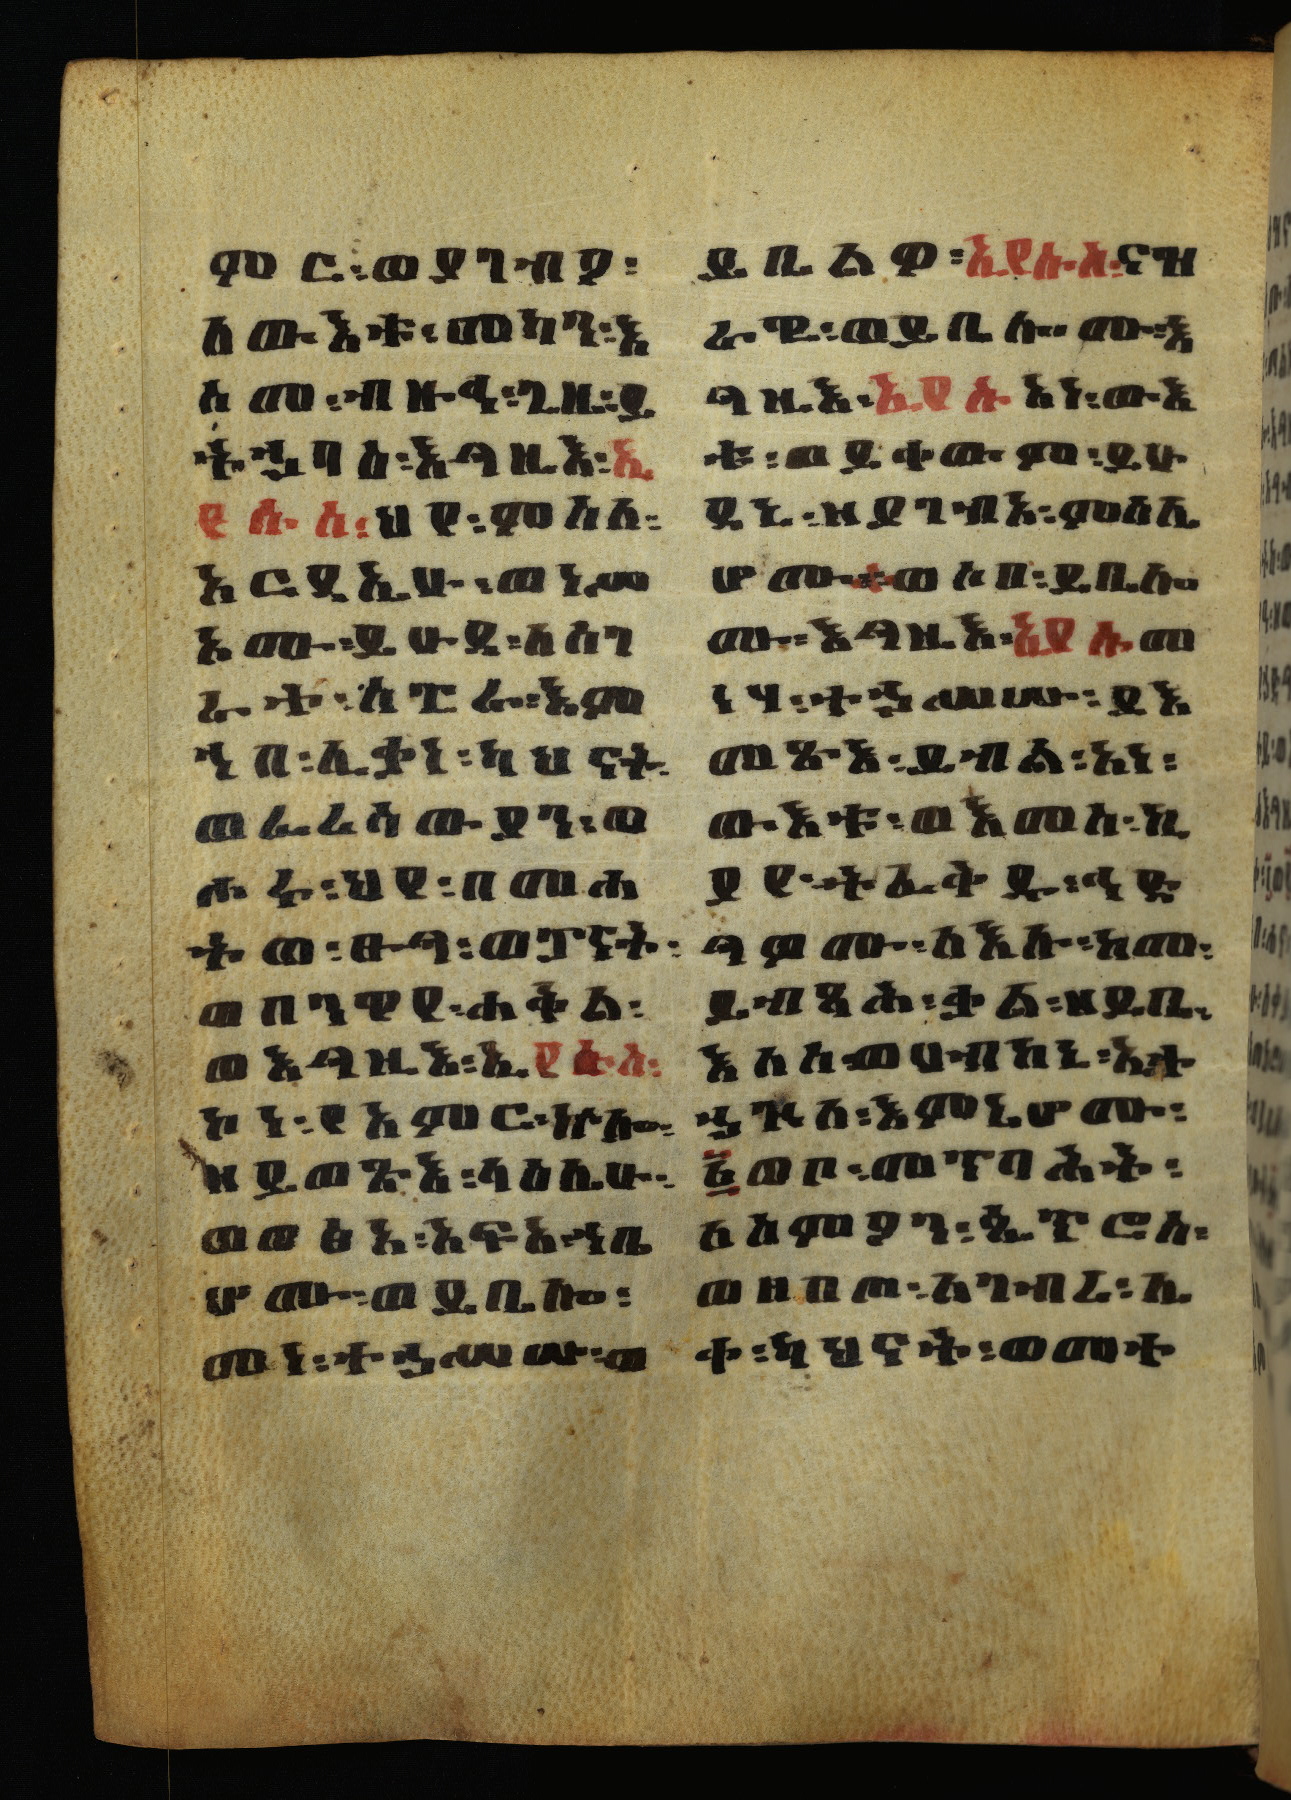 ምር፡ወያንብያ፡
ለውእቱ፡መካን፡እ
ስመ፡ብዙኅ፡ጊዜ፡ይ
ትኄባስ፡እግዚእ፡ኢ
የሱስ፡ህየ፡ምስለ፡
አርዳኢሁ፡ወነሥ
አሙ፡ይሁዳ፡ለሰገ
ራት፡ለጲራ፡እም
ኀበ፡ሊቃነ፡ካህናት
ወፈሪሳውያን፡ወ
ሖሩ፡ህየ፡በመሐ
ትወ፡ፀዋግ፡ወጳናት፡
ወበንዋየ፡ሐቅል፡
ወእግዚእ፡ኢየሱስ፡
ኮነ፡የአምር፡ኵሎ፡
ዘይመጽእ፡ላዕሌሁ፡
ወወፅአ፡አፍአ፡ኀቤ
ሆሙ፡ወይቤሎ፡
መነ፡ተኀሥሡ፡ወ
ይቤልዎ፡ኢየሱስ፡ናዝ
ራዊ፡ወይቤሎሙ፡እ
ግዚእ፡ኢየሱስ፡አነ፡ውእ
ቱ፡ወይቀውም፡ይሁ
ዳኒ፡ዘያገብእ፡ምስሌ
ሆሙ፡ወሶበ፡ይቤሎ
ሙ፡እግዚእ፡ኢየሱስ፡መ
ነሃ፡ተኀሥሡ፡ያእ
መጽእ፡ይብል፡አነ፡
ውእቱ፡ወእመሰ፡ኪ
ያየ፡ትፈቅዱ፡ኅድ
ግዎሙ፡ለእሉ፡ከመ፡
ይብጻሕ፡ቃል፡ዘይቤ፡
እለሰ፡ወሀብከኒ፡ኢት
ኀጕለ፡እምኔሆሙ፡
፩ወቦ፡መጥባሕት፡
ለስምዖን፡ጴጥሮስ፡
ወዘበጦ፡ለገብረ፡ሊ
ቀ፡ካህናት፡ወመት